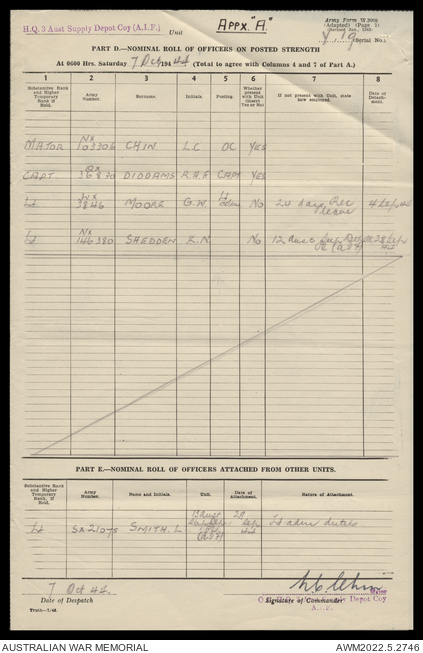 H.Q. 3 Aust Supply Depot Coy (A.I.F.)
Unit
APPX. "A".
Army Form W.3008
(Adapted) (Page 2)
(Serial No.)
PART D.—NOMINAL ROLL OF OFFICERS ON POSTED STRENGTH
At 0600 Hrs. Saturday 7 Oct 1944 (Total to agree with Columns 4 and 7 of Part A.)
1 2 3 4 5 6 7 8
Substantive Rank and Higher Temporary Rank if Held.
Army Number.
Surname.
Initials.
Posting.
Whether present with Unit (insert Yes or No)
If not present with Unit, state how employed.
Date of Detachment.
MAJOR NX 103306 CHIN L C OC YES
CAPT. QX 36870 DIDDAMS R.A.F CAPT YES
Lt WX 3846 MOORE G.W. Lt No 24 days Rec leave 4 Sep 44
Lt NX 146380 SHEDDEN No 12 Aust Sup Dep 28 Sep
PART E.—NOMINAL ROLL OF OFFICERS ATTACHED FROM OTHER UNITS.
Substantive Rank and Higher Temporary Rank, if Held.
Army Number.
Name and Initials.
Unit.
Date of Attachment.
Nature of Attachment.
Lt SX21075 SMITH. L Sep 44 Lt adm duties
7 Oct 44.
Date of Despatch
Major
Signature of Commander
Supply Depot Coy
A.I.F.
AUSTRALIAN WAR MEMORIAL
AWM2022.5.2746